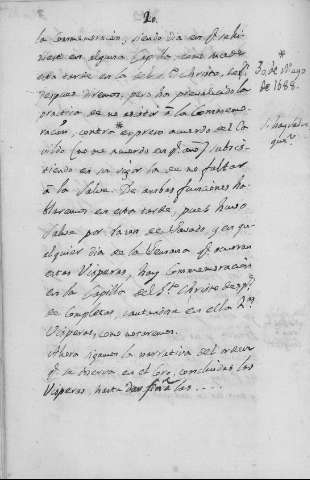 20.
la Conmemoración, siendo dia en q.e hubi
tiese en alguna Capilla, como sucede
esta tarde en la del S.to Christo, seg.n
despues diremos, pero ha prevalecido la
practica de no asistir à la Conmemo-
racion, contra * expreso acuerdo del Ca-
vildo (no me acuerdo en q.e año) subsis-
tiendo en su vigor la de no faltar
à la Salve. De ambas funciones ha-
blaremos en esta tarde, pues huvo
Salve por razon de Savado, y en qu-
alquier dia de la Semana q.e ocurran
estas Visperas, hay Conmemoracion
en la Capilla del S.to Christo desp.s
de Completas, cantandose en ella 2.as
Visperas, como notaremos.
Ahora sigamos la narrativa del orden
q.e se observa en el Coro, concluidas las
Visperas, hasta dar fin à las ....
*
30 de Mayo
de 1688.